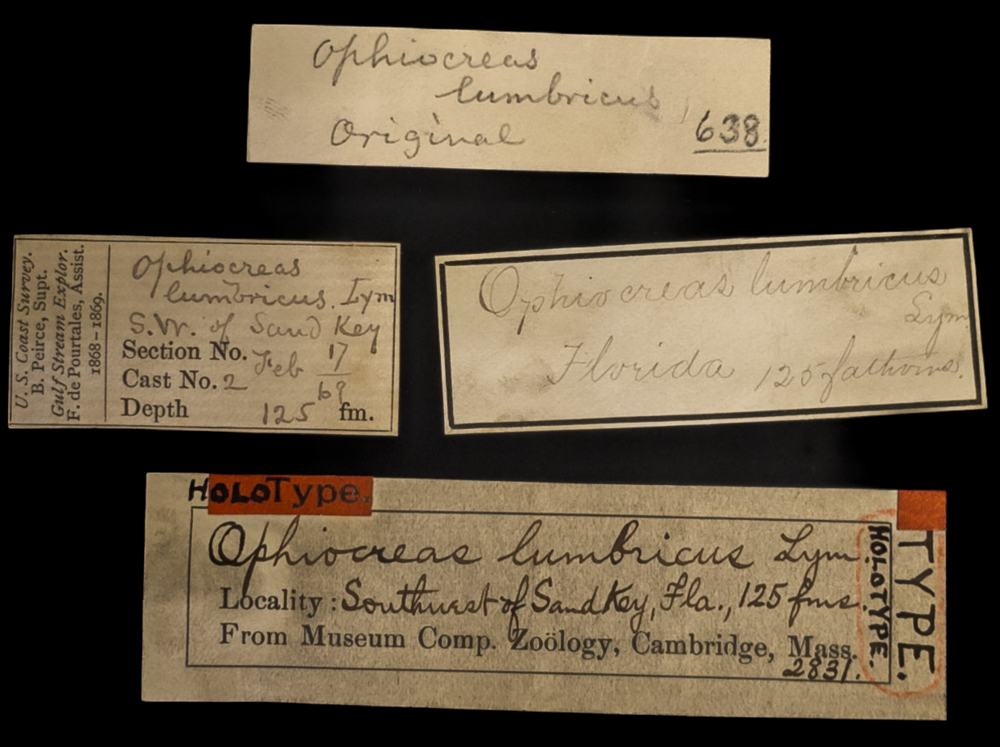 Ophiocreas
lumbricus
Original
638
U.S. Coast Survey.
B. Peirce, Supt.
Gulf Stream Explor.
F. de Pourtales, Assist.
1868-1869.
Ophiocreas
lumbricus. Lym
S.W. of Sand Key
Section No. Feb 17
Cast No. 2 69
Depth 125 fm.
Ophiocreas lumbricus
Lym.
Florida 125 fathoms.
HOLOType.
Ophiocreas lumbricus Lym.
Locality: Southwest of Sand Key, Fla., 125 fms.
From Museum Comp. Zoölogy, Cambridge, Mass.
2831.
HOLOTYPE.
TYPE.